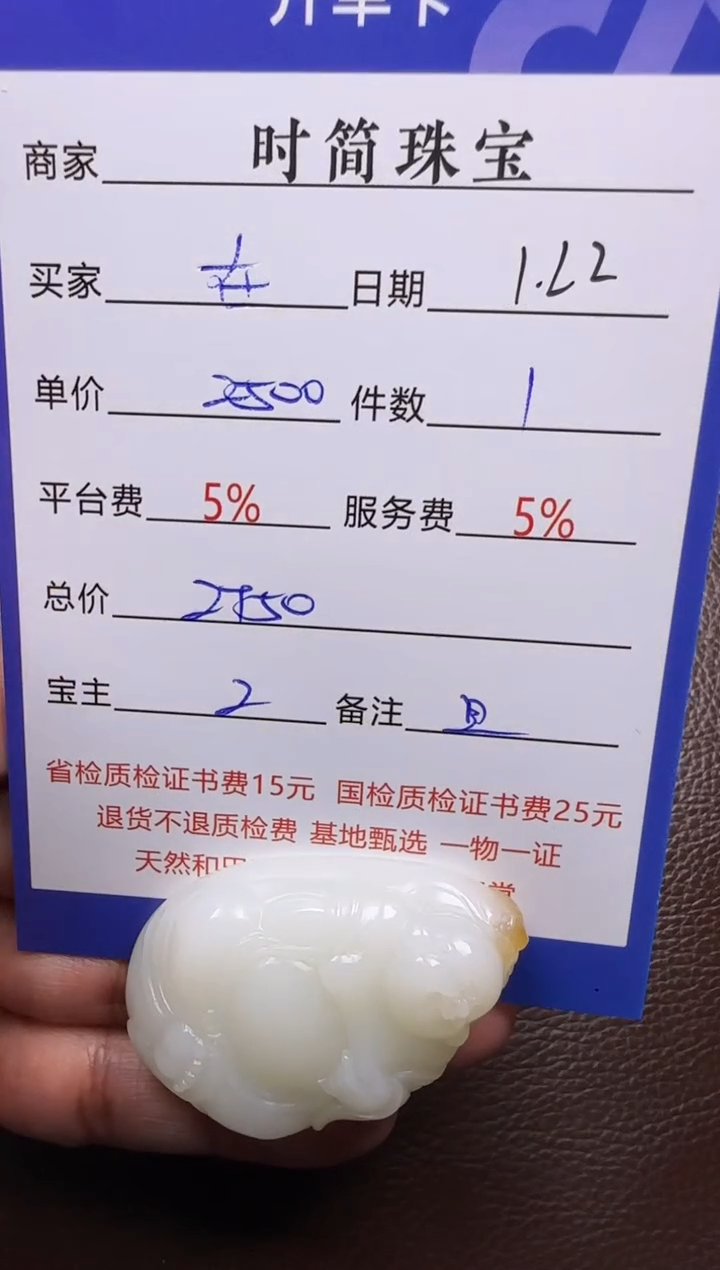 商家 时简珠宝
买家 日期 1.22
单价 2500 件数 1
平台费 5% 服务费 5%
总价 2750
宝主 2 备注
省检质检证书费15元 国检质检证书费25元
退货不退质检费 基地甄选 一物一证
天然和田